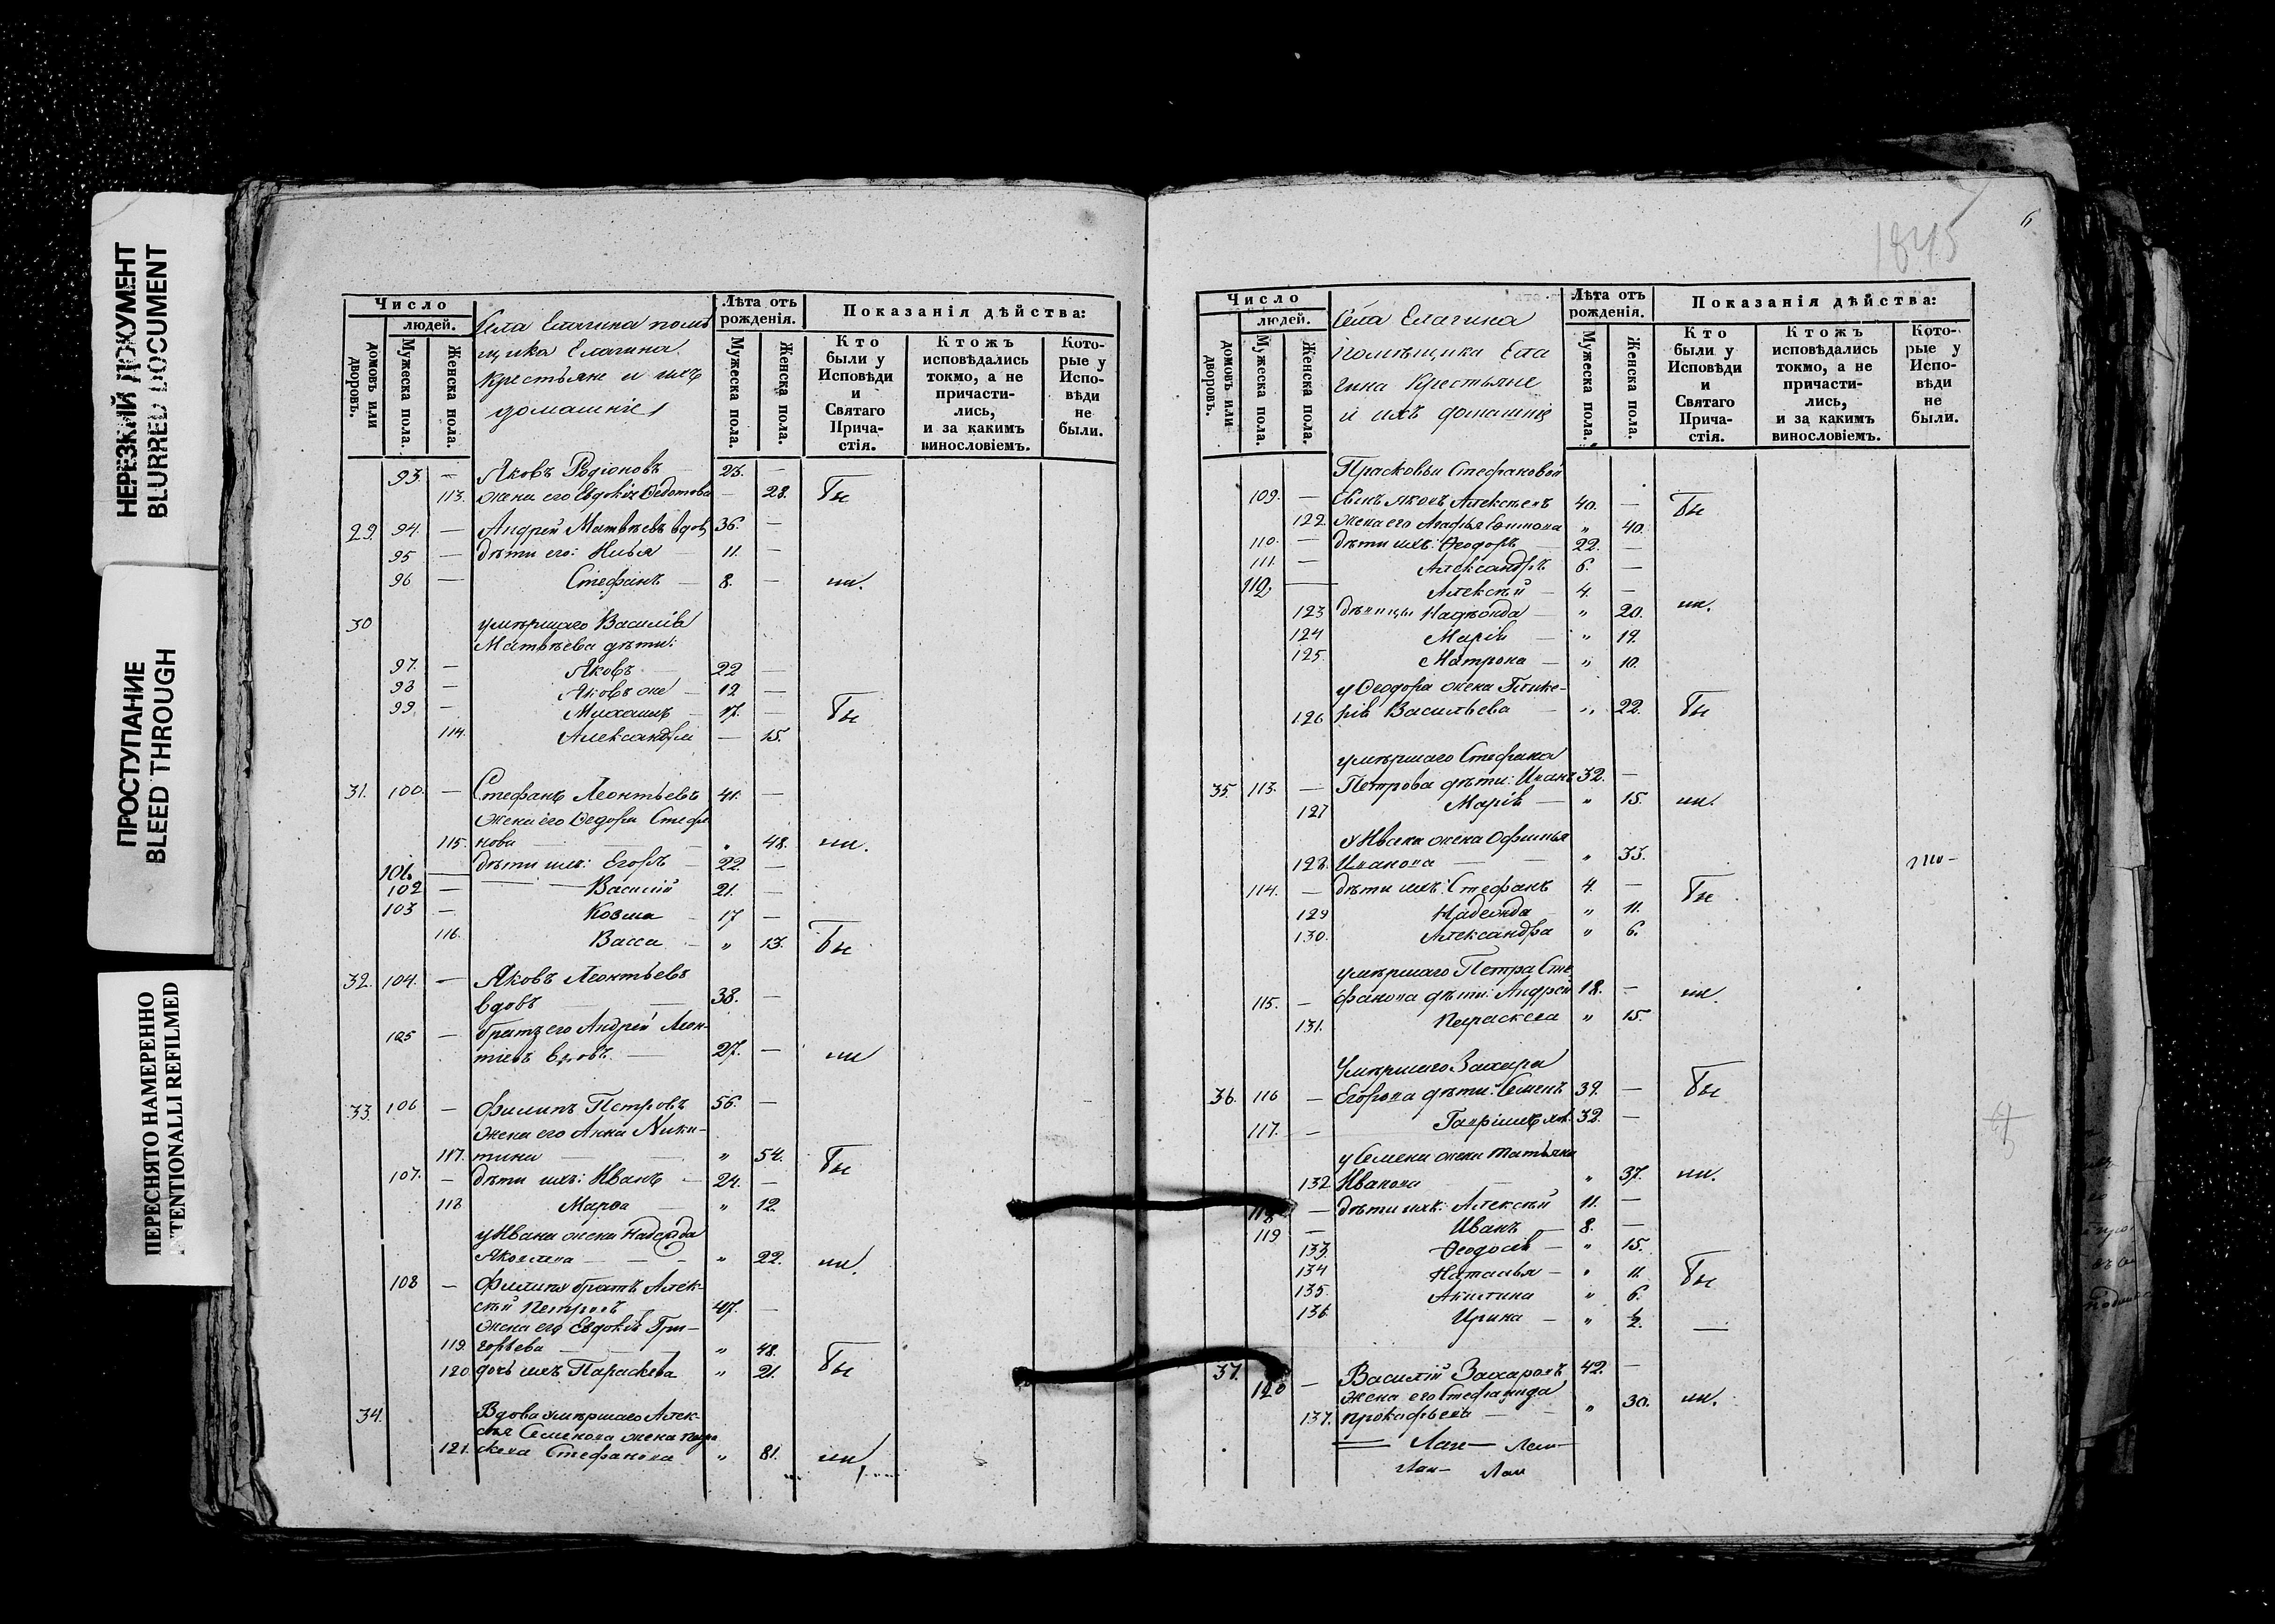 НЕРЕЗКИЙ ДОКУМЕНТ
BLURRED DOCUMENT
ПРОСТУПАНИЕ
BLEED THROUGH
ПЕРЕСНЯТО НАМЕРЕННО
INTENTIONALLI REFILMED
Число
людей.
домовъ или дворовъ.
Мужеска пола.
Женска пола.
Села Елагина помѣ
щика Елагина
крестьяне и ихъ
домашніе
Лѣта отъ рожденія.
Мужеска пола.
Женска пола.
Показанія дѣйства:
Кто были у Исповѣди и Святаго Прича-стія.
Ктожъ исповѣдались токмо, а не причасти-лись, и за какимъ винословіемъ.
Кото-рые у Испо-вѣди не были.
93. — Яковъ Родіоновъ 23. —
113. жена его Евдокія Ѳедотова — 28. Бы
29. 94. — Андрей Матвѣевъ вдов 36. —
95 — дѣти его: Илья 11. —
96 — Стефанъ — 8. — ли.
30 умершаго Василія
Матвѣева дѣти:
97. — Яковъ 22 —
98 — Яковъ же — 19 —
99. — Михаилъ 17. — Бы
114. Александра — 15.
31. 100. — Стефанъ Леонтьевъ 41. —
жена его Ѳедора Стефа
115. нова " 48. ли.
101. — дѣти ихъ: Егоръ — 22. —
102 — Василій 21. —
103 — Козма 17 —
116. Васса " 13. Бы
32. 104. — Яковъ Леонтьевъ
вдовъ 38. —
105 — братъ его Андрей Леон-
тіевъ вдовъ — 27. — ли
33. 106 — Филипъ Петровъ 56. —
жена его Анна Ники-
117. тина " 54. Бы
107. — дѣти ихъ: Иванъ — 24. —
118 Марѳа " 12
у Ивана жена Надежда
Яковлева — — — " 22. ли.
108 — Филипа братъ Алек-
сѣй Петровъ 47. —
жена его Евдокія Гри-
119. горьева " 48.
120 дочь ихъ Параскева " 21. Бы
34. Вдова умершаго Алек-
сѣя Семенова жена Пара
121. скева Стефанова " 81. ли
1845
6
Число
людей.
домовъ или дворовъ.
Мужеска пола.
Женска пола.
Села Елагина
помѣщика Ела
гина крестьяне
и ихъ домашніе
Лѣта отъ рожденія.
Мужеска пола.
Женска пола.
Показанія дѣйства:
Кто были у Исповѣди и Святаго Прича-стія.
Ктожъ исповѣдались токмо, а не причасти-лись, и за какимъ винословіемъ.
Кото-рые у Испо-вѣди не были.
Прасковьи Стефановой
109. — Алексѣевъ 40. — Бы
122. жена его Агафья " 40.
110. — дѣти ихъ: Ѳеодоръ 22. —
111. — Александръ 6. —
112. — Алексѣй — 4. —
123 дѣвицы Надежда — " 20. ли.
124 Марія — " 19.
125. Матрона — " 10.
у Ѳеодора жена Глике-
126 рія Васильева " 22. Бы
умершаго Стефана
35. 113. — Петрова дѣти: Иванъ 32. —
127 Марія — " 15. ли.
у Ивана жена Офимья
128. Иванова — — " 33.
114. — дѣти ихъ: Стефанъ 4. — Бы
129 Надежда " 11.
130. Александра " 6.
умершаго Петра Сте
115. — фанова дѣти: Андрей 18. — ли.
131. Параскева " 15.
Умершаго Захара
36. 116 — Егорова дѣти: Семенъ 39. — Бы
117. — Гавріилъ 32. —
у Семена жена Татьяна
132 Иванова " 37. ли.
118 — дѣти ихъ: Алексѣй 11. —
119 — Иванъ — 8. —
133. Ѳеодосія — " 15.
134 Наталья — " 11. Бы
135. Акилина " 6.
136 Ирина — " ½. —
37. 120 — Василій Захаровъ 42. —
жена его Стефанида
137. Прокофьева — " 30. ли.